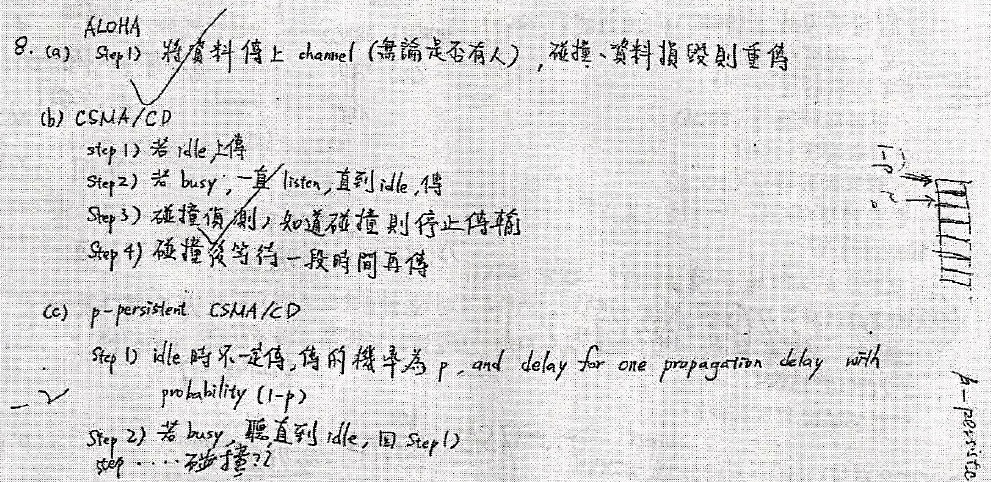 ALOHA
8. (a) Step1) 將資料傳上 channel (無論是否有人), 碰撞、資料損毀則重傳
(b) CSMA/CD
step 1) 若 idle, 上傳
Step2) 若 busy, 一直 listen, 直到 idle, 傳
Step3) 碰撞偵測, 知道碰撞則停止傳輸
Step 4) 碰撞後等待一段時間再傳
(c) p-persistent CSMA/CD
Step 1) idle 時不一定傳, 傳的機率為 p, and delay for one propagation delay with
probability (1-p)
Step 2) 若 busy, 聽直到 idle, 回 Step1)
step ···· 碰撞??
-2
p-persiste